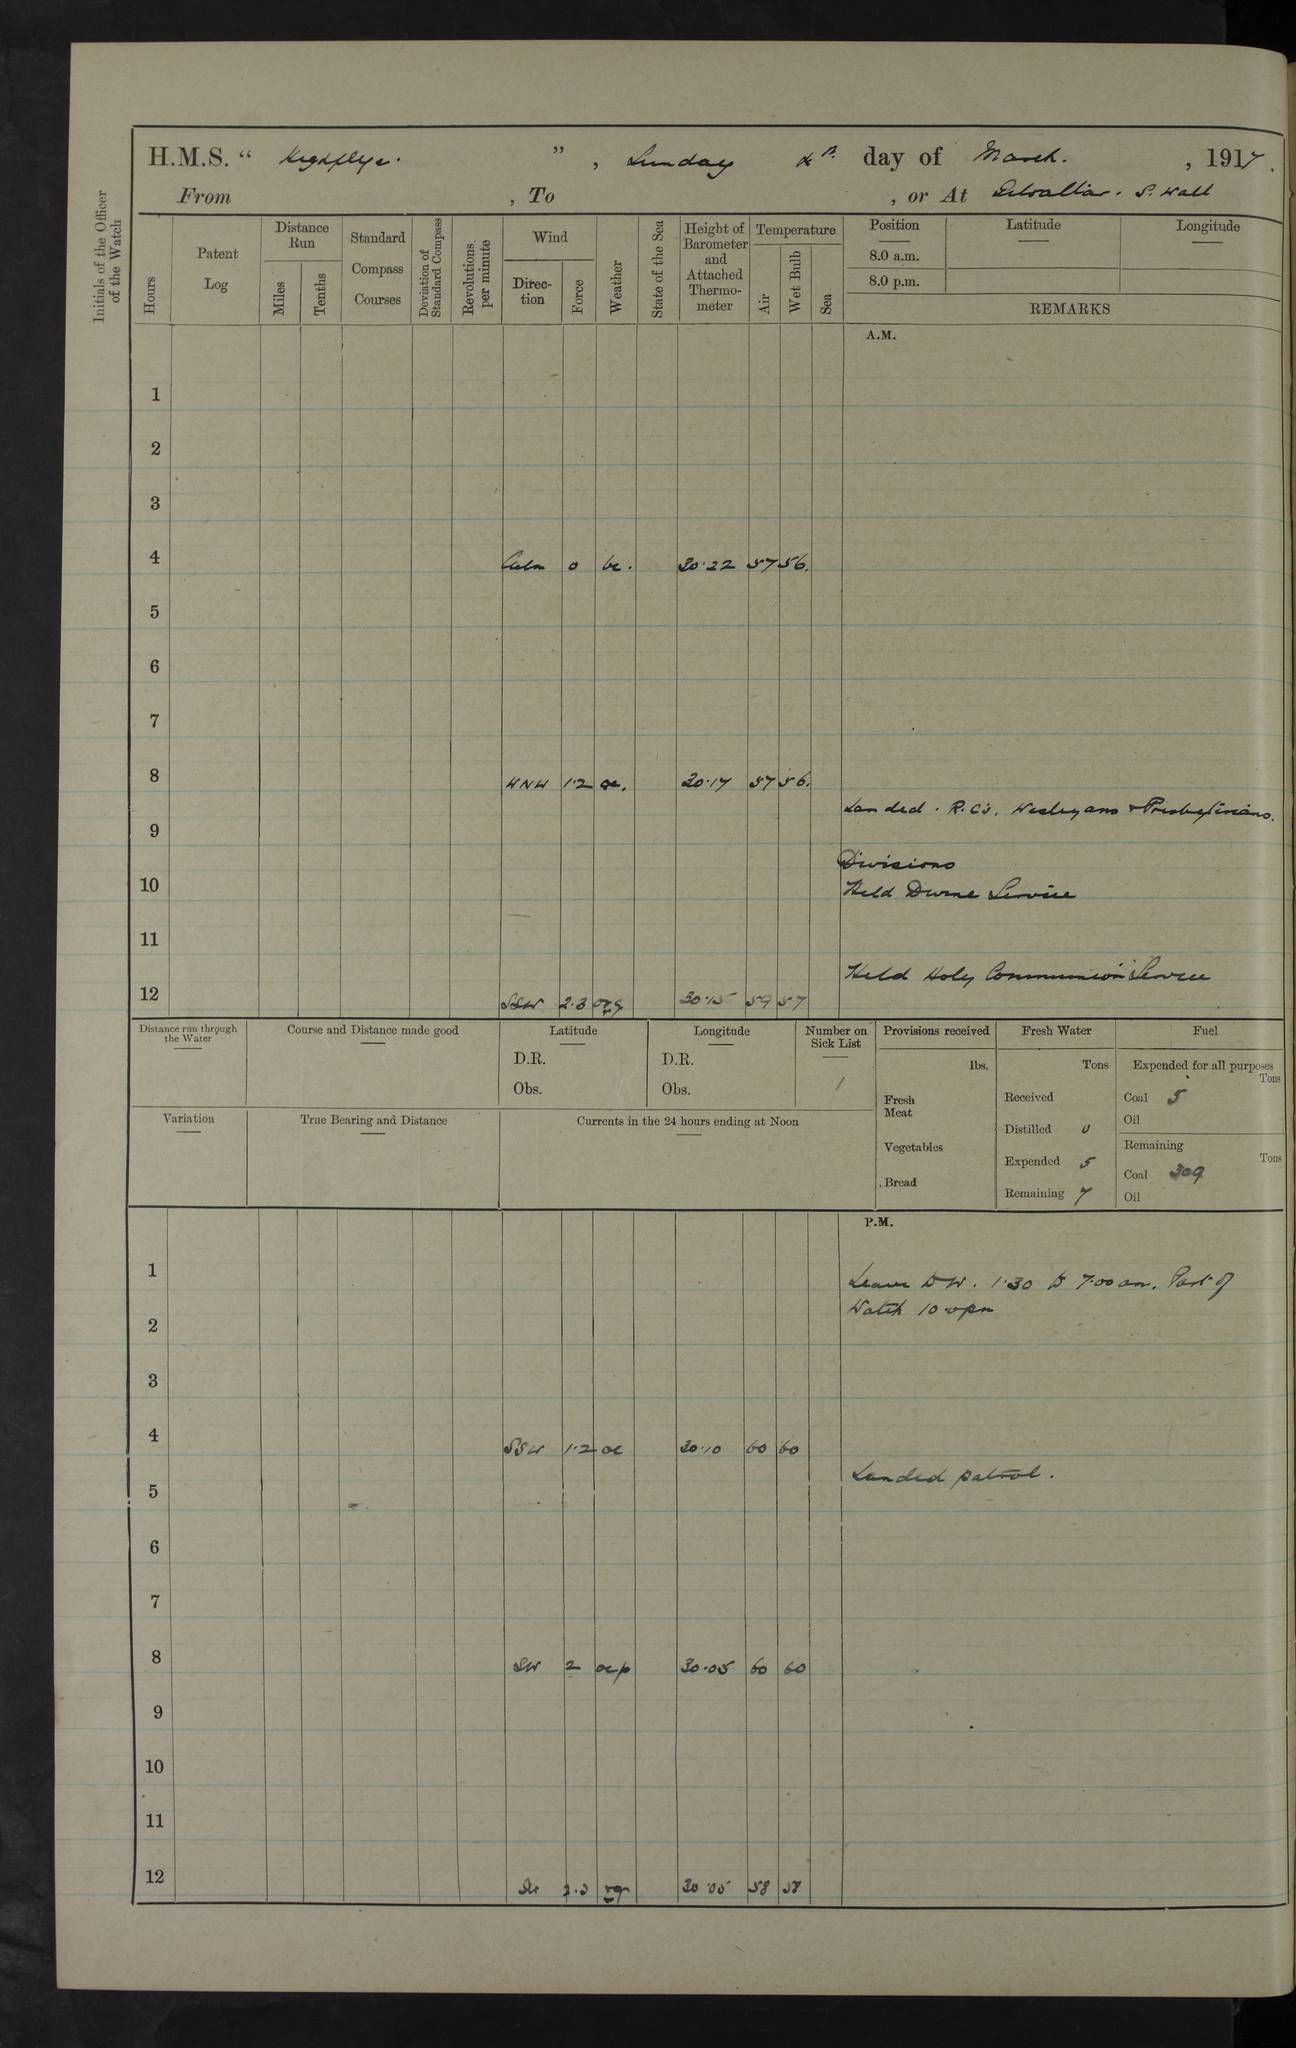 H.M.S. " Highflyer. " , Sunday 4th day of March. , 1917.
From , To , or At Gibraltar. S. Wall
Initials of the Officer of the Watch
Hours
Patent Log
Distance Run
Miles
Tenths
Standard Compass Courses
Deviation of Standard Compass
Revolutions per minute
Wind
Direc-tion
Force
Weather
State of the Sea
Height of Barometer and Attached Thermo-meter
Temperature
Air
Wet Bulb
Sea
Position Latitude Longitude
8.0 a.m.
8.0 p.m.
REMARKS
A.M.
1
2
3
4 Calm 0 bc. 30.22 57 56.
5
6
7
8 WNW 1.2 oc. 30.17 57 56.
Landed. R.C's. Wesleyans & Presbyterians.
9
Divisions
10 Held Divine Service
11
Held Holy Communion Service
12 SSW 2.3 org 30.15 59 57
Distance run through the Water
Course and Distance made good
Latitude
D.R.
Obs.
Longitude
D.R.
Obs.
Number on Sick List
1
Provisions received
lbs.
Fresh Meat
Vegetables
Bread
Fresh Water
Tons
Received
Distilled 0
Expended 5
Remaining 7
Fuel
Expended for all purposes
Tons
Coal 5
Oil
Remaining
Tons
Coal 309
Oil
Variation
True Bearing and Distance
Currents in the 24 hours ending at Noon
P.M.
1 Leave to W. 1.30 to 7.00 am. Part of
Watch 10.0 pm
2
3
4 SSW 1.2 oc 30.10 60 60
Landed patrol.
5
6
7
8 SW 2 ocp 30.05 60 60
9
10
11
12 2.3 30.05 58 58